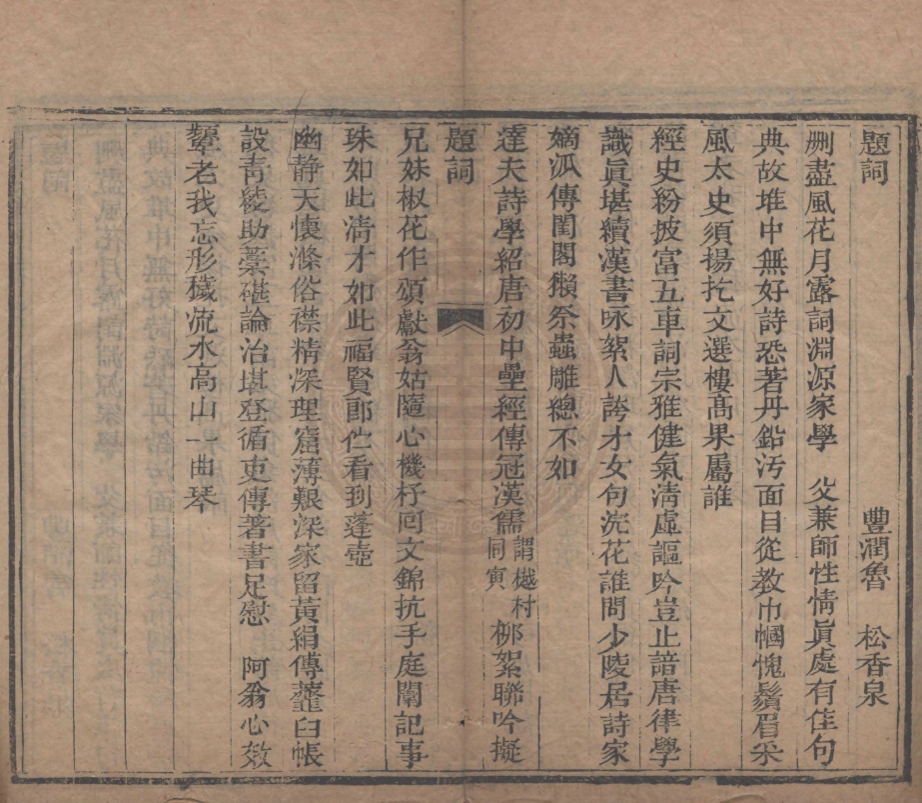 題詞　豐潤魯　松香泉
刪盡風花月露詞淵源家學　父兼師性情眞處有佳句
典故堆中無好詩恐著丹鉛汚面目從教巾幗愧鬚眉采
風太史須揚扢文選樓高果屬誰
經史紛披富五車詞宗雅健氣淸虛謳吟豈止諳唐律學
識眞堪續漢書咏絮人誇才女句浣花誰問少陵居詩家
嫡派傳閨閣獺祭蟲雕總不如
達夫詩學紹唐初中壘經傳冠漢儒謂樾村同寅柳絮聯吟擬
題詞
兄妹椒花作頌獻翁姑隨心機杼回文錦抗手庭闈記事
珠如此淸才如此福賢郎伫看到蓬壺
幽静天懷滌俗襟精深理窟薄艱深家留黃絹傳虀臼帳
設靑綾助藁碪論治堪登循吏傳著書足慰　阿翁心效
顰老我忘形穢流水高山一曲琴